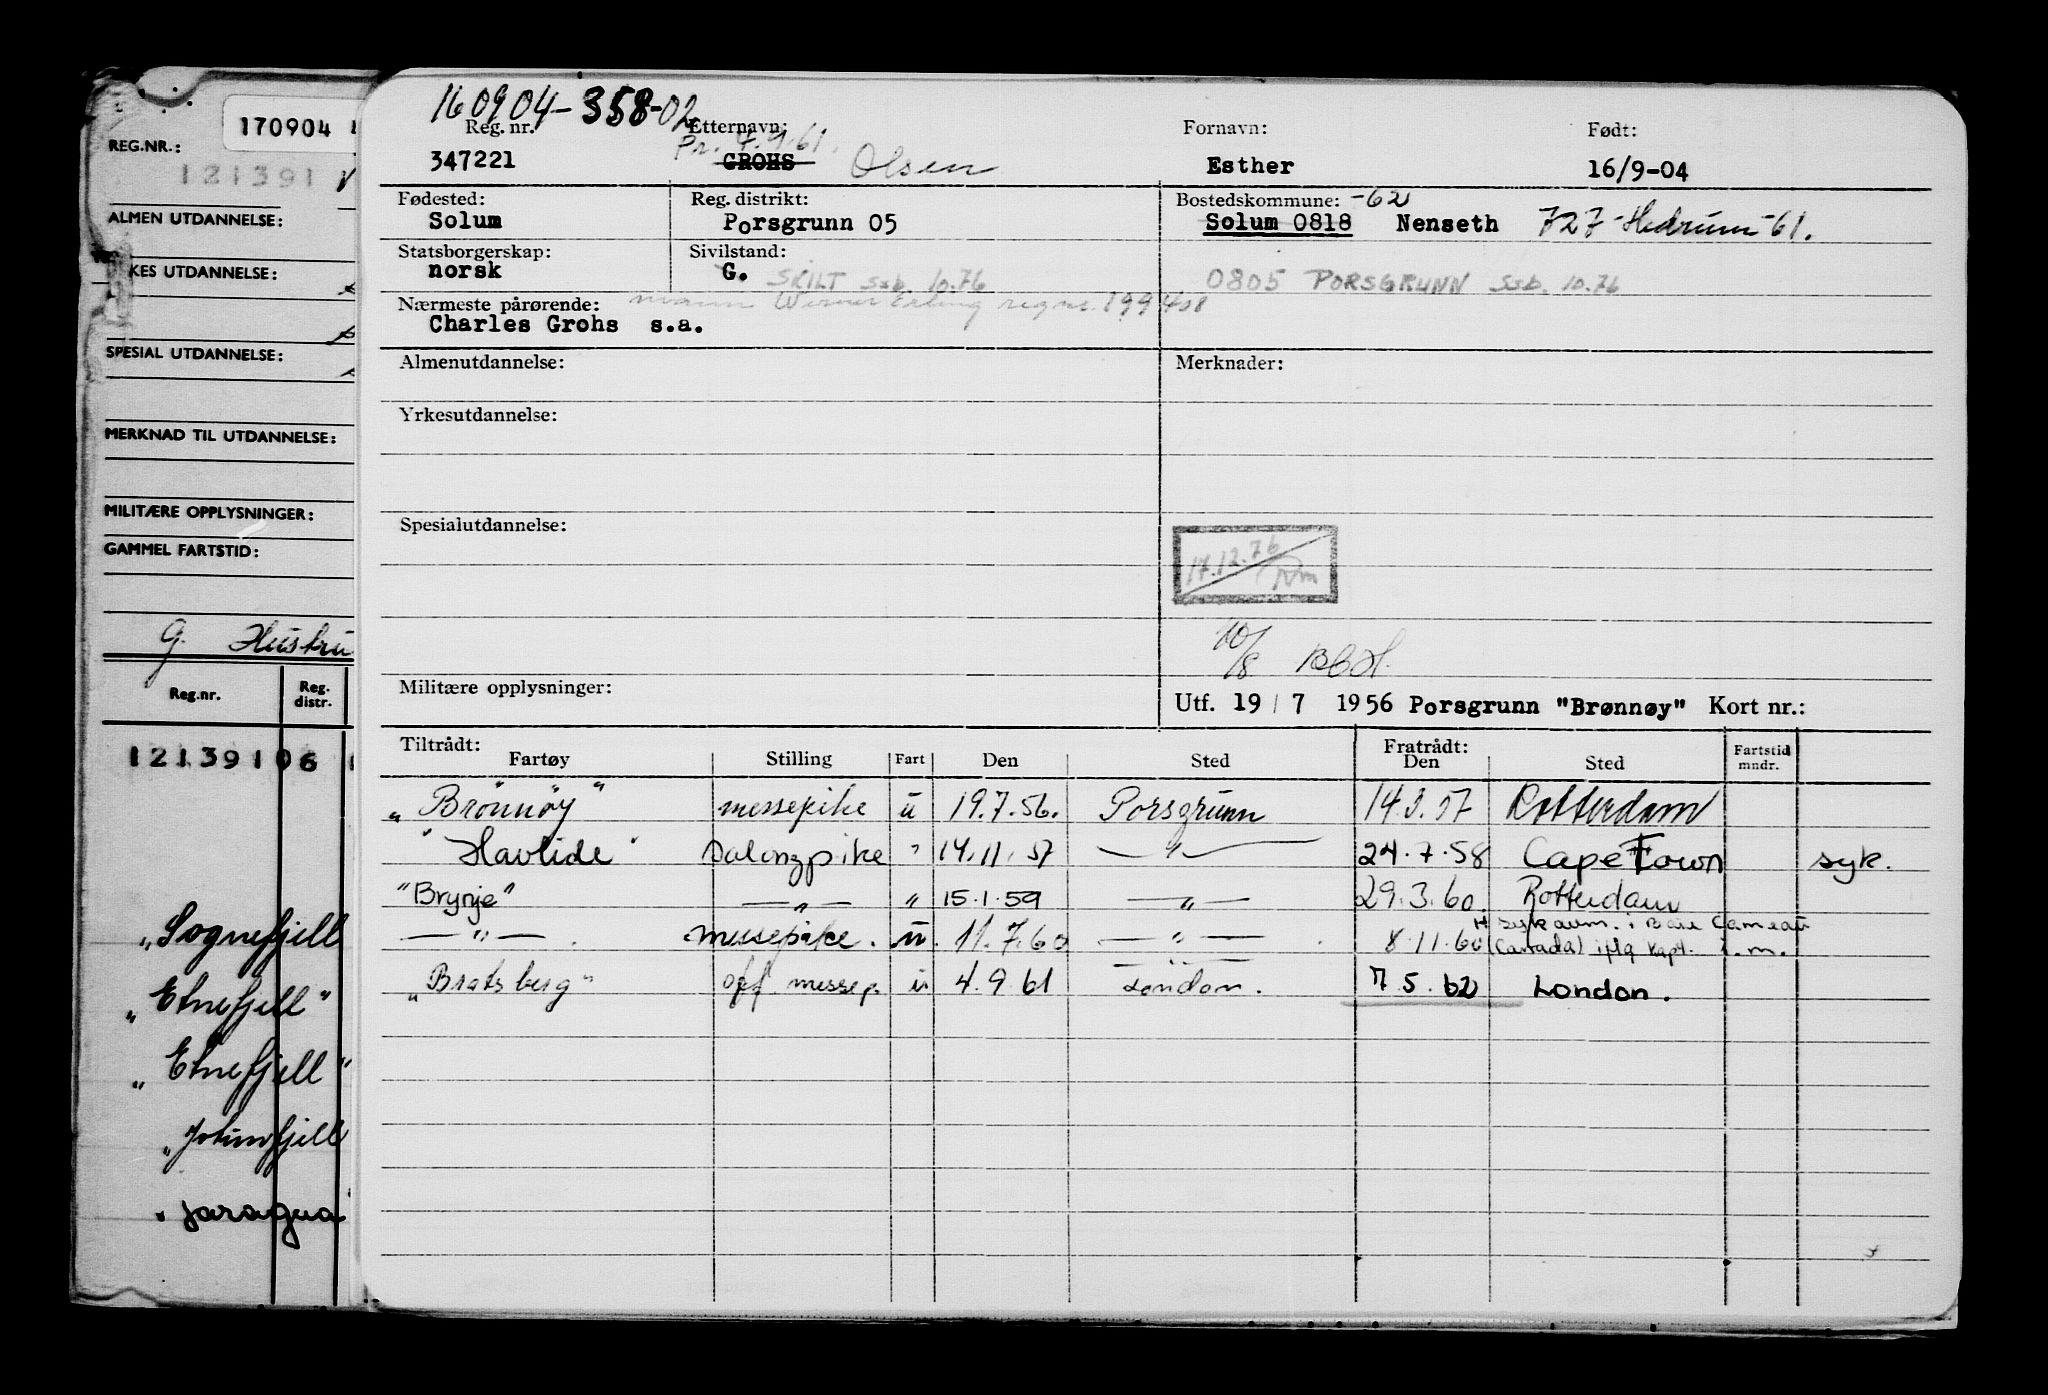 170904
REG.NR.:
121391
ALMEN UTDANNELSE:
KES UTDANNELSE:
SPESIAL UTDANNELSE:
MERKNAD TIL UTDANNELSE:
MILITÆRE OPPLYSNINGER:
GAMMEL FARTSTID:
G. Hustru
Reg.nr. Reg. distr.
121391 06
"Sognefjell
"Etnefjell"
"Etnefjell"
"Jotunfjell
" Jaragua
160904-358-02
Reg. nr. Etternavn: Fornavn: Født:
Pr. 4.9.61.
347221 GROHS Olsen Esther 16/9-04
Fødested: Reg. distrikt: Bostedskommune: -62
Solum Porsgrunn 05 Solum 0818 Nenseth 727-Hedrum-61.
Statsborgerskap: Sivilstand:
norsk G. SKILT Ssb. 10.76 0805 PORSGRUNN Ssb. 10.76
Nærmeste pårørende: mann Werner Erling regnr. 199408
Charles Grohs s.a.
Almenutdannelse: Merknader:
Yrkesutdannelse:
Spesialutdannelse:
17.12.76
10/8 BCH.
Militære opplysninger: Utf. 19 / 7 1956 Porsgrunn "Brønnøy" Kort nr.:
Tiltrådt: Fratrådt:
Fartøy Stilling Fart Den Sted Den Sted Fartstid mndr.
"Brönnöy" messepike u 19.7.56. Porsgrunn 14.3.57 Rotterdam
"Havlide" Salongpike " 14.11.57 —"— 24.7.58 Cape Town syk.
"Brynje" —"— " 15.1.59 —"— 29.3.60. Rotterdam
—"— messepike. u. 11.7.60 —"— 8.11.60 H sykavm. i Baie Comeau
(Canada) iflg kapt. i.m.
"Bratsberg" off. messep. u 4.9.61 London. 7.5.62 London.